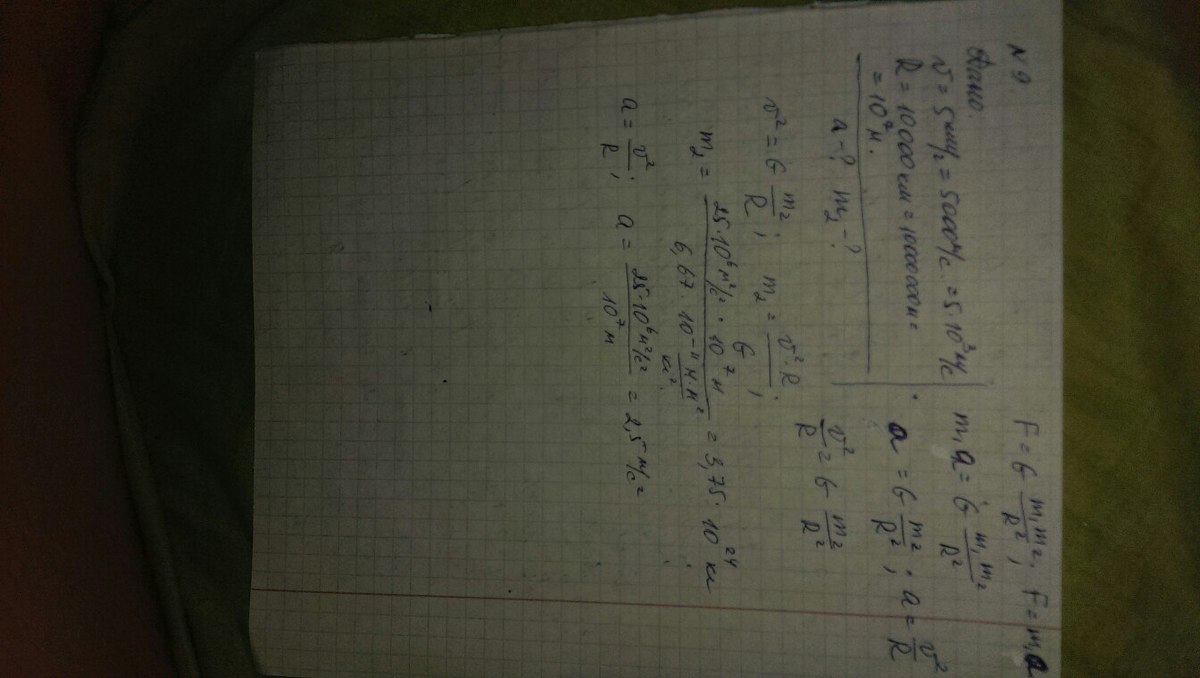 N 9
Дано.
v = 5 км/с = 5000 м/с = 5·10³ м/с
R = 10000 км = 10000000 м =
= 10⁷ м.
a - ? m₂ - ?
F = G m₁m₂/R²; F = m₁a
m₁a = G m₁m₂/R²
a = G m₂/R²; a = v²/R
v²/R = G m₂/R²
v² = G m₂/R; m₂ = v²·R/G;
m₂ = 25·10⁶ м²/с² · 10⁷ м / 6,67·10⁻¹¹ Н·м²/кг² = 3,75·10²⁴ кг
a = v²/R; a = 25·10⁶ м²/с² / 10⁷ м = 2,5 м/с²